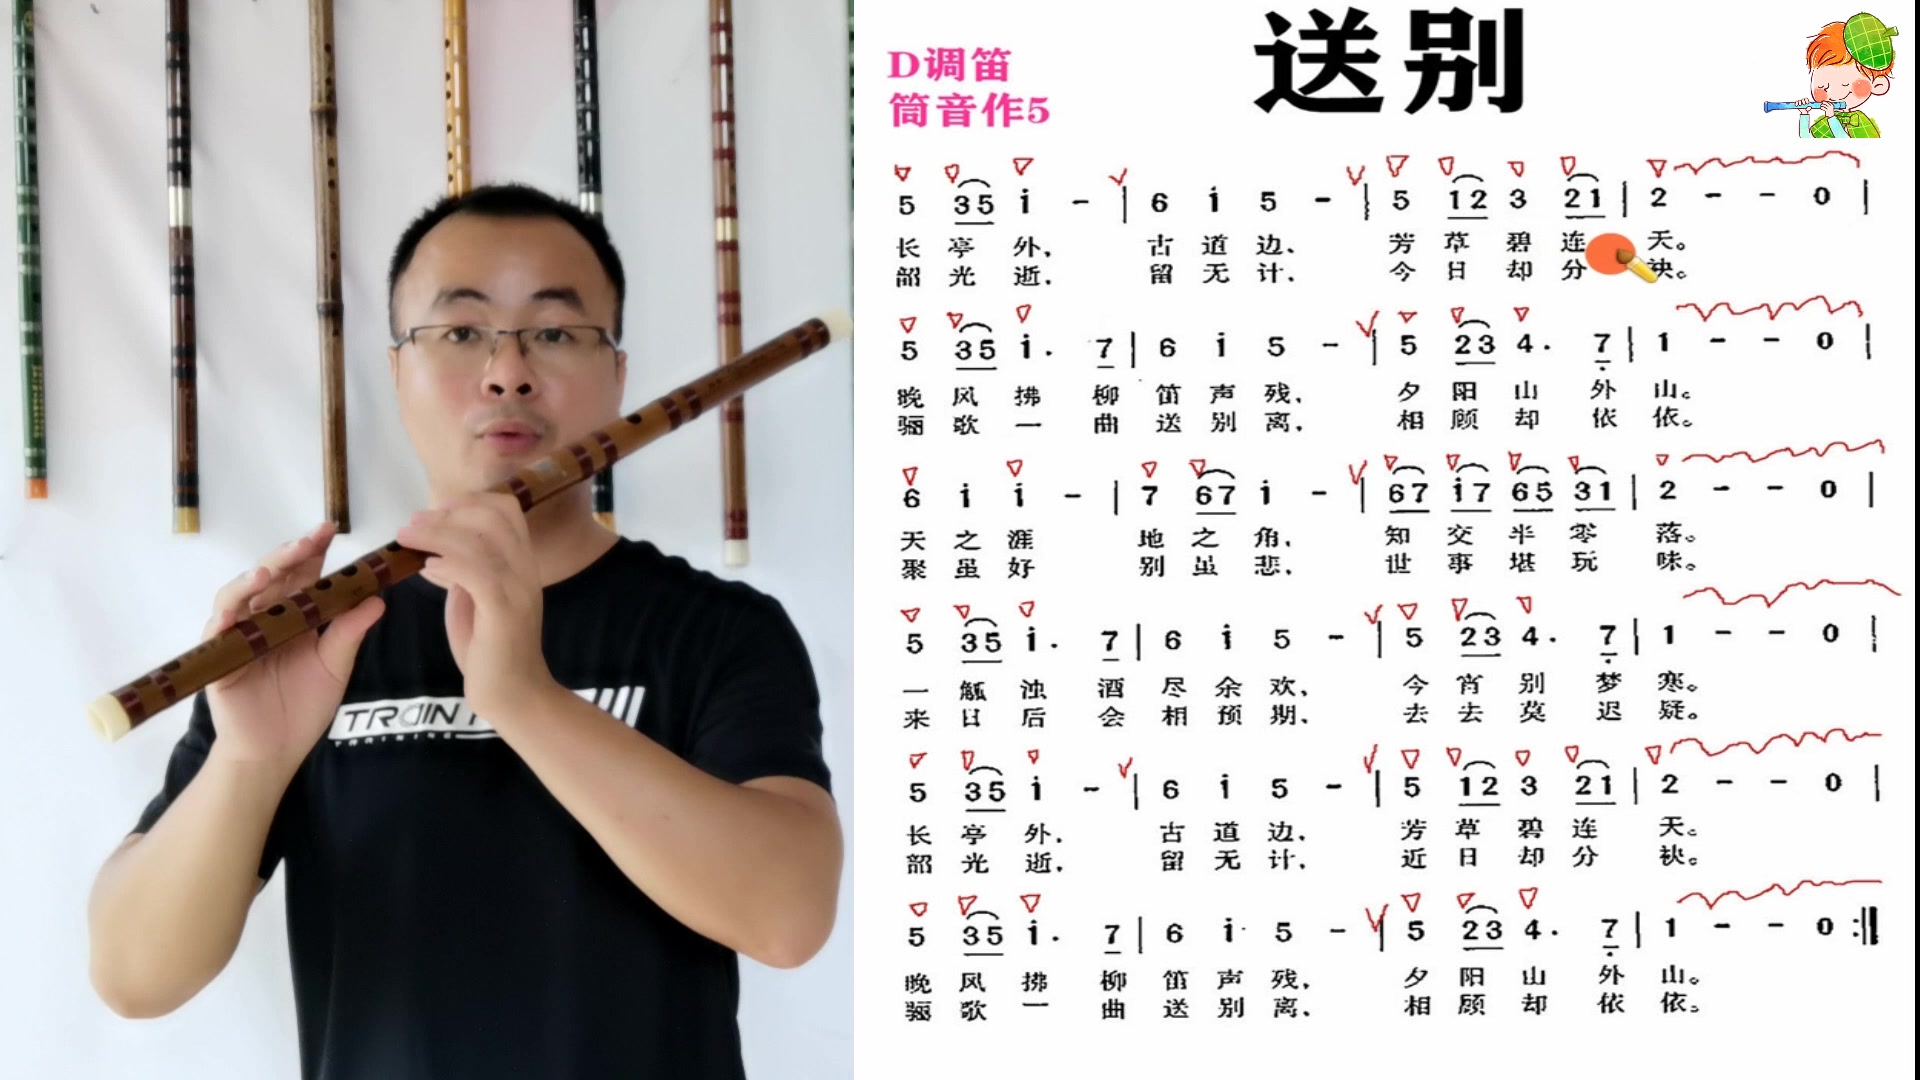 送别
D调笛
筒音作5
5 35 i - | 6 i 5 - | 5 12 3 21 | 2 - - 0 |
长 亭 外, 古 道 边, 芳 草 碧 连 天。
韶 光 逝, 留 无 计, 今 日 却 分 袂。
5 35 i · 7 | 6 i 5 - | 5 23 4 · 7̣ | 1 - - 0 |
晚 风 拂 柳 笛 声 残, 夕 阳 山 外 山。
骊 歌 一 曲 送 别 离, 相 顾 却 依 依。
6 i i - | 7 67 i - | 67 i7 65 31 | 2 - - 0 |
天 之 涯 地 之 角, 知 交 半 零 落。
聚 虽 好 别 虽 悲, 世 事 堪 玩 味。
5 35 i · 7 | 6 i 5 - | 5 23 4 · 7̣ | 1 - - 0 |
一 觚 浊 酒 尽 余 欢, 今 宵 别 梦 寒。
来 日 后 会 相 预 期, 去 去 莫 迟 疑。
5 35 i - | 6 i 5 - | 5 12 3 21 | 2 - - 0 |
长 亭 外, 古 道 边, 芳 草 碧 连 天。
韶 光 逝, 留 无 计, 近 日 却 分 袂。
5 35 i · 7 | 6 i 5 - | 5 23 4 · 7̣ | 1 - - 0 :||
晚 风 拂 柳 笛 声 残, 夕 阳 山 外 山。
骊 歌 一 曲 送 别 离, 相 顾 却 依 依。
TRAIN
TRAINING